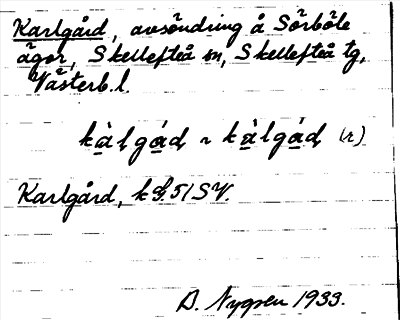 Karlgård, avsöndring å Sörböle
ägor, Skellefteå sn, Skellefteå tg,
Västerb. l.
kàlgád ~ kàlgád (r)
Karlgård, k 51 SV.
B. Nygren 1933.